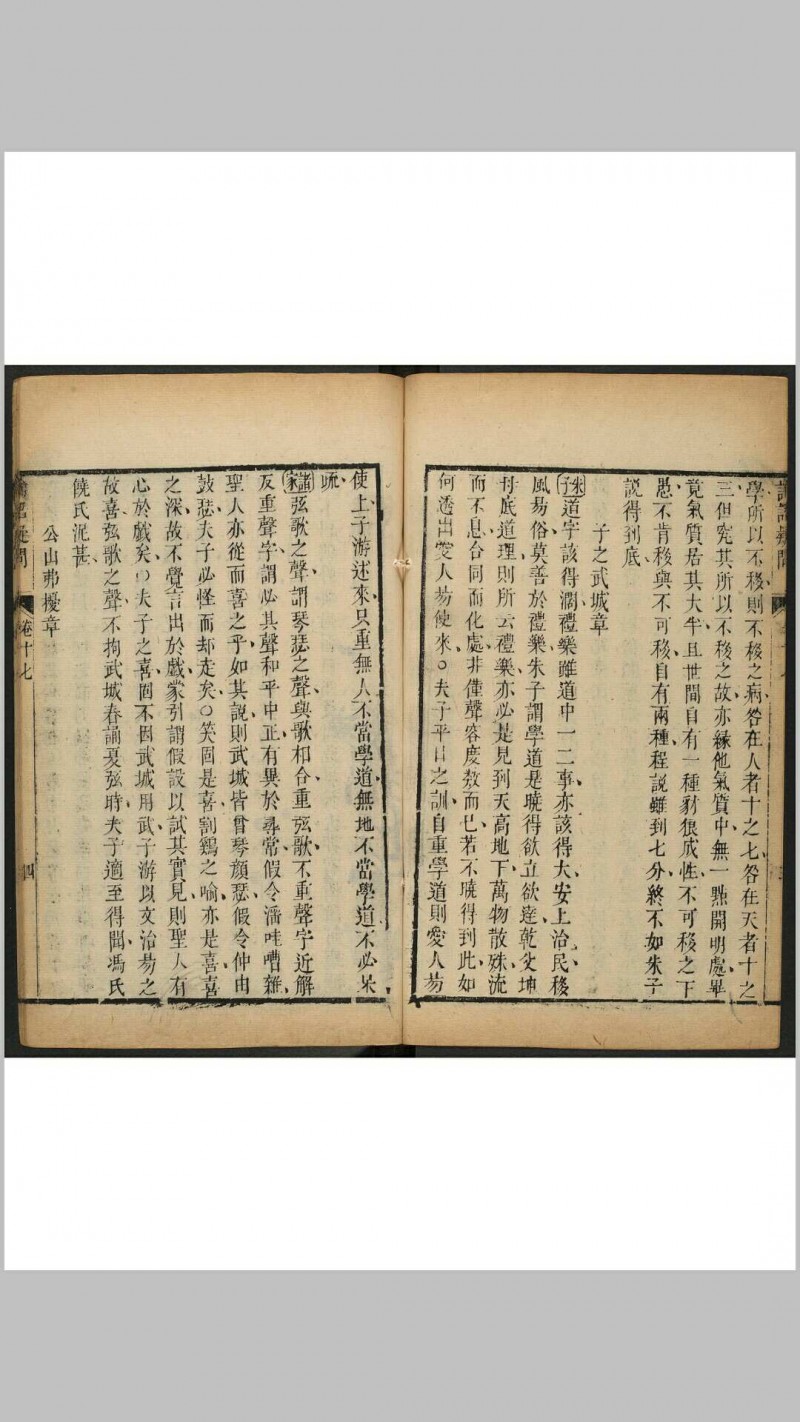 學所以不移則不移之病咎在人者十之七咎在天者十之
三但究其所以不移之故亦緣他氣質中無一點開明處畢
竟氣質居其大半且世間自有一種豺狼成性不可移之下
愚不肯移與不可移自有兩種程說雖到七分終不如朱子
說得到底
子之武城章
朱子道字該得濶禮樂雖道中一二事亦該得大安上治民移
風易俗莫善於禮樂朱子謂學道是曉得欲立欲達乾父坤
母底道理則所云禮樂亦必是見到天高地下萬物散殊流
而不息合同而化處非僅聲容度數而已若不曉得到此如
何透出愛人易使來○夫子平日之訓自重學道則愛人易
使上子游述來只重無人不當學道無地不當學道不必呆
疏
諸家弦歌之聲謂琴瑟之聲與歌相合重弦歌不重聲字近解
反重聲字謂必其聲和平中正有異於尋常假令潘哇嘈雜
聖人亦從而喜之乎如其說則武城皆曾琴顏瑟假令仲由
鼓瑟夫子必怪而却走矣○笑固是喜割鷄之喻亦是喜喜
之深故不覺言出於戲蒙引謂假設以試其實見則聖人有
心於戲矣○夫子之喜固不因武城用武子游以文治易之
故喜弦歌之聲不拘武城春誦夏弦時夫子適至得聞馮氏
饒氏泥甚
公山弗擾章
卷十七
四